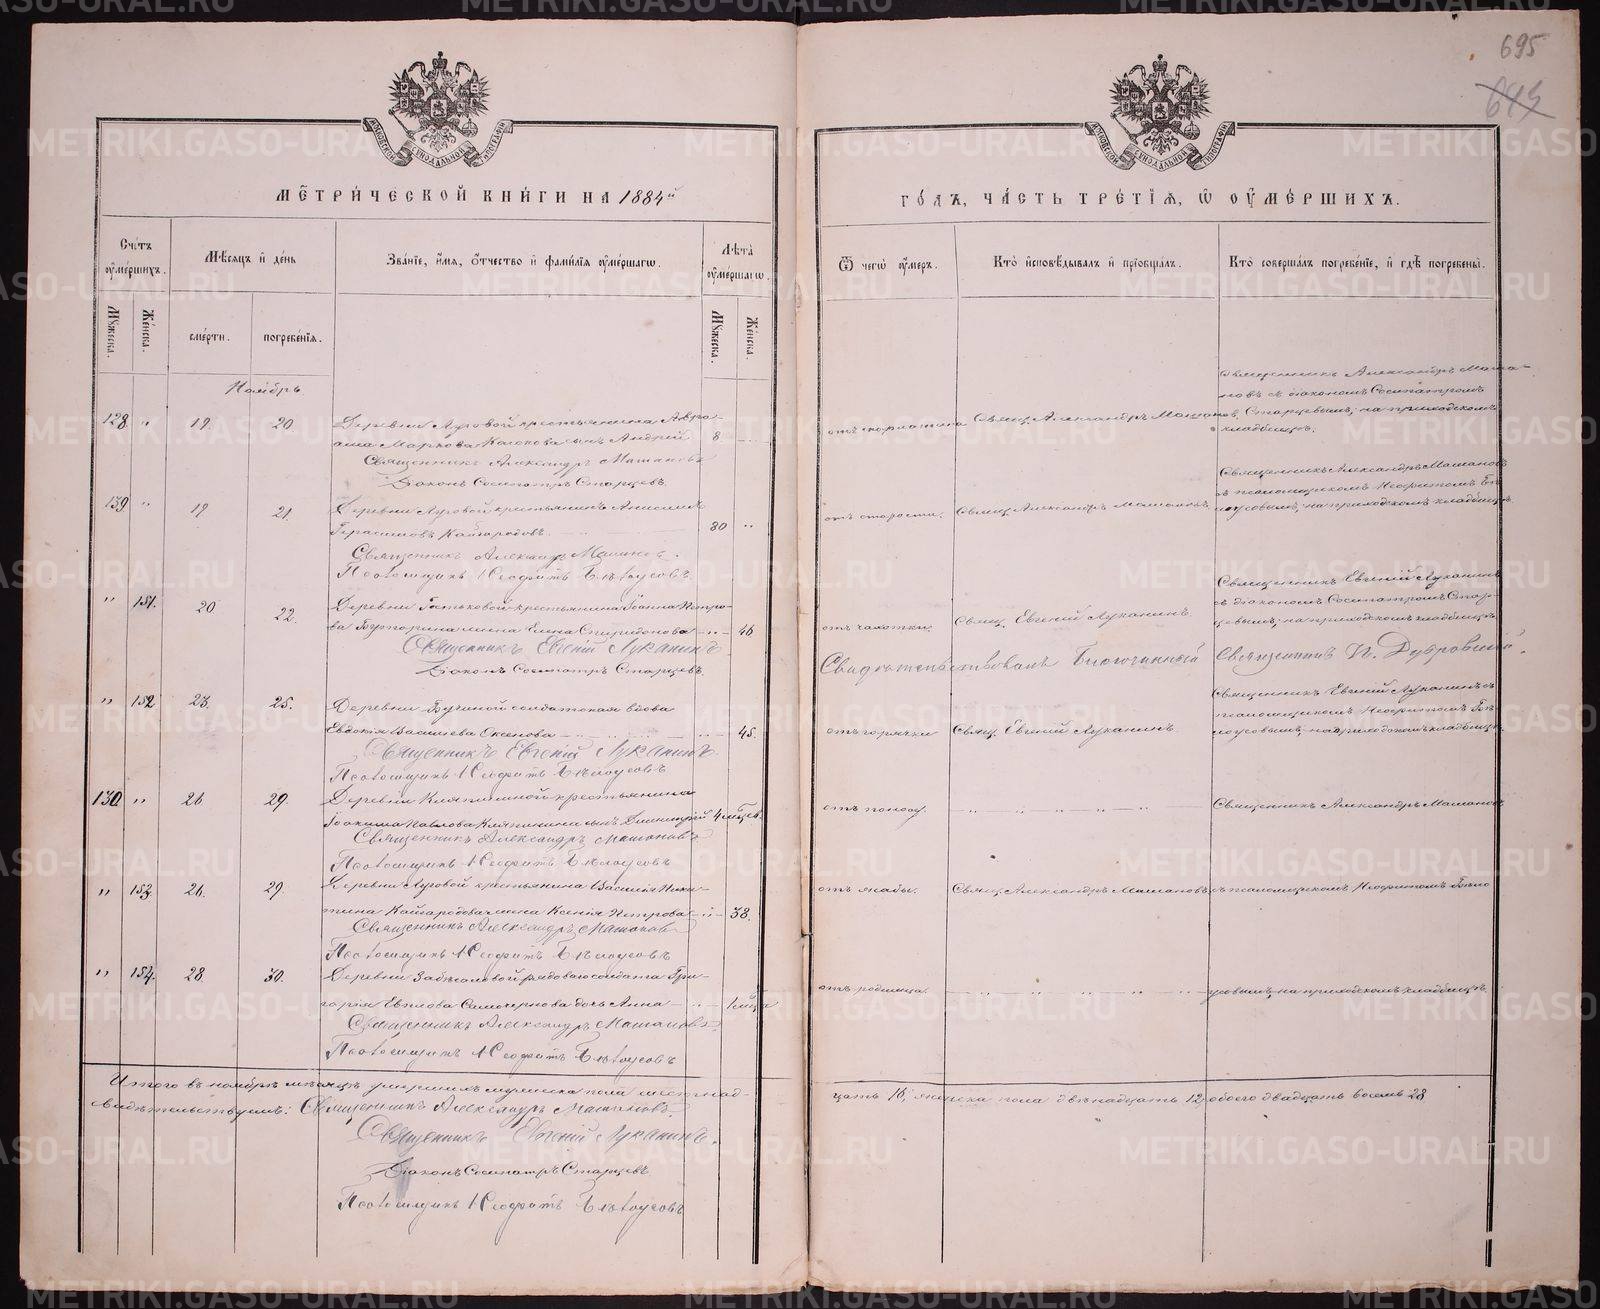 695
645
МОСКОВСКОЙ СИНОДАЛЬНОЙ ТИПОГРАФІИ
МОСКОВСКОЙ СИНОДАЛЬНОЙ ТИПОГРАФІИ
МЕТРИЧЕСКОЙ КНИГИ НА 1884й
ГОДЪ, ЧАСТЬ ТРЕТІЯ, Ѡ ОУМЕРШИХЪ.
Счетъ оумершихъ.
Мѣсяцъ и день
Званіе, имя, отчество и фамилія оумершагѡ.
Лѣта оумершагѡ.
Ѿ чегѡ оумеръ.
Кто исповѣдывалъ и пріобщалъ.
Кто совершалъ погребеніе, и гдѣ погребены.
Мужеска.
Женска.
смерти.
погребенія.
Мужеска.
Женска.
Ноябрь
128 " 19. 20 Деревни Луговой крестьянина Авра-
ама Маркова сынъ Андрей 8
Священникъ Александръ Машановъ
Діаконъ Сосипатръ Старцевъ.
отъ скарлатина Свящ. Александръ Машановъ
Священникъ Александръ Маша-
новъ съ діакономъ Сосипатромъ
Старцевымъ, на приходскомъ
кладбищѣ.
129 " 19 21. Деревни Луговой крестьянинъ
Герасимовъ Кайгородовъ. 80 "
Священникъ Александръ Машановъ.
Псаломщикъ Неофитъ Бѣлоусовъ
отъ старости. Свящ. Александръ Машановъ
Священникъ Александръ Машановъ
съ псаломщикомъ Неофитомъ Бѣ-
лоусовымъ, на приходскомъ кладбищѣ.
" 151. 20 22. крестьянина Іоанна Петро-
ва жена Елена Спиридонова 46
Священникъ Евгеній Луканинъ
Діаконъ Сосипатръ Старцевъ.
отъ чахотки. Свящ. Евгеній Луканинъ.
Священникъ Евгеній Луканинъ
съ діакономъ Сосипатромъ Стар-
цевымъ, на приходскомъ кладбищѣ
Свидѣтельствовалъ Благочинный Священник П. Дубровский.
" 152 23. 25. Деревни солдатская вдова
Евдокія Васильева Оксенова 45.
Священникъ Евгеній Луканинъ
Псаломщикъ Неофитъ Бѣлоусовъ
отъ горячки Свящ. Евгеній Луканинъ.
Священникъ Евгеній Луканинъ съ
псаломщикомъ Неофитомъ Бѣ-
лоусовымъ, на приходскомъ кладбищѣ.
130 " 26 29. Деревни Кляпиной крестьянина
Іоакима Павлова Кляпинина сынъ Димитрій 4 мѣсяц.
Священникъ Александръ Машановъ
Псаломщикъ Неофитъ Бѣлоусовъ
отъ поносу.
Священникъ Александръ Машановъ
" 153. 26. 29. Деревни Луговой крестьянина Василія Ники-
тина Кайгородова жена Ксенія Петрова 38.
Священникъ Александръ Машановъ
Псаломщикъ Неофитъ Бѣлоусовъ
отъ жабы. Свящ. Александръ Машановъ съ псаломщикомъ Неофитомъ Бѣло
" 154. 28 30. Деревни рядоваго солдата Гри-
горія дочь Анна 1 мѣсяца
Священникъ Александръ Машановъ
Псаломщикъ Неофитъ Бѣлоусовъ
отъ родимца.
усовымъ, на приходскомъ кладбищѣ.
Итого въ ноябрѣ мѣсяцѣ умершихъ мужеска пола шестнад-
цать 16, женска пола двѣнадцать 12, обоего двадцать восемь 28
видѣтельствуемъ: Священникъ Александръ Машановъ.
Священникъ Евгеній Луканинъ.
Діаконъ Сосипатръ Старцевъ
Псаломщикъ Неофитъ Бѣлоусовъ
METRIKI.GASO-URAL.RU